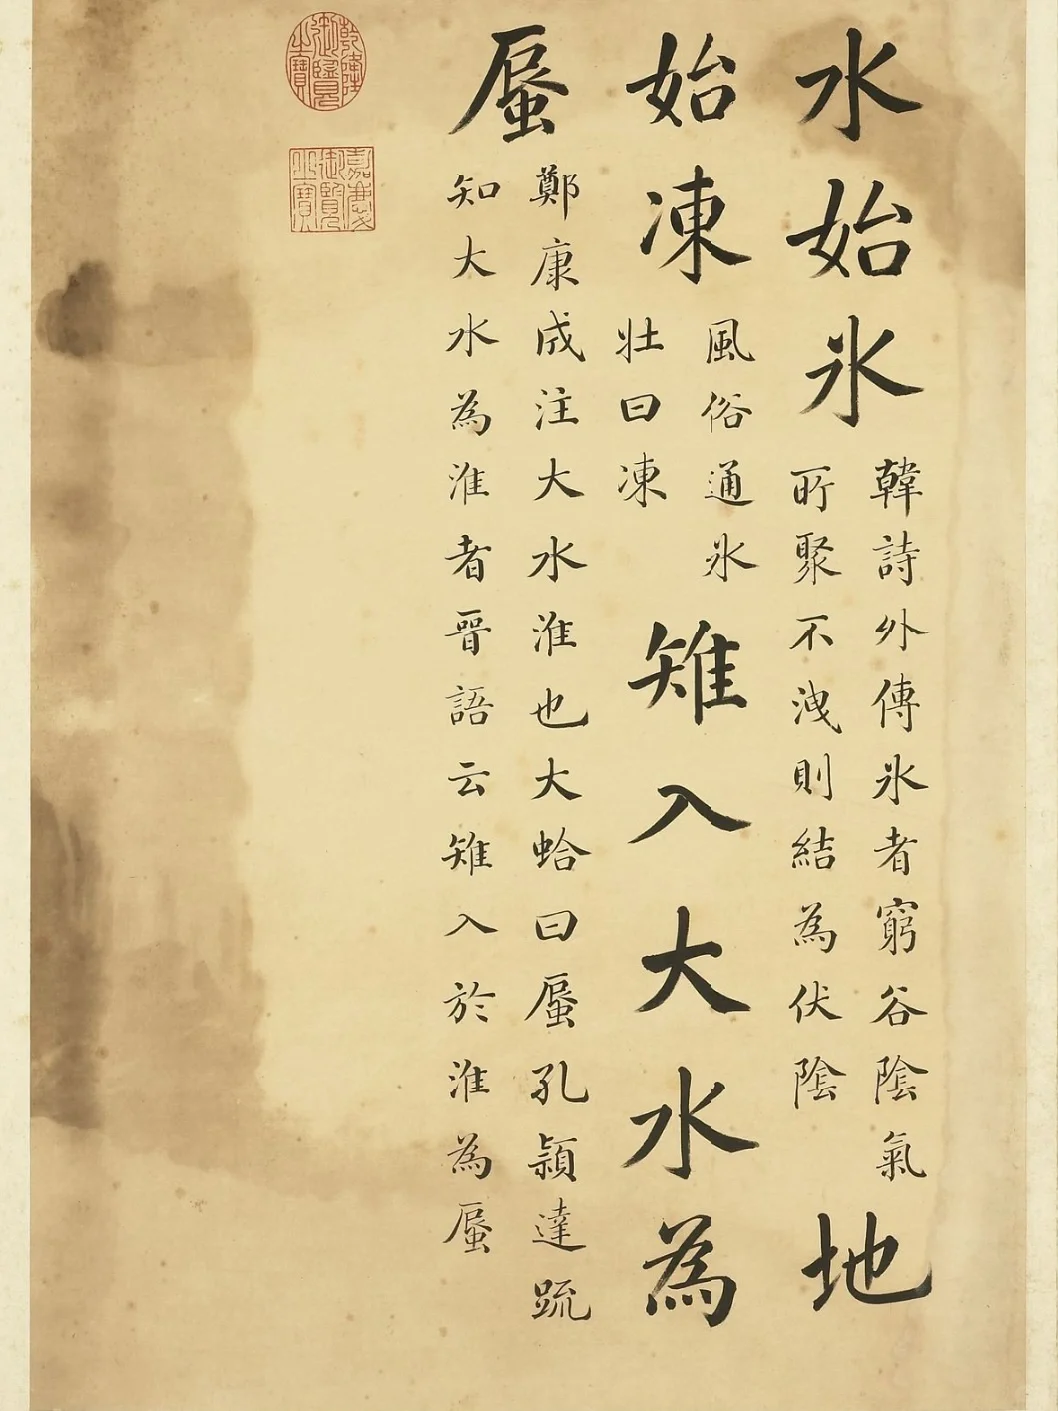 水始氷
韓詩外傳氷者窮谷隂氣
所聚不洩則結為伏隂
地
始凍
風俗通氷
壯曰凍
雉入大水為
蜃
鄭康成注大水淮也大蛤曰蜃孔頴達䟽
知大水為淮者晉語云雉入於淮為蜃
乾隆御覽之寶
嘉慶御覽之寶